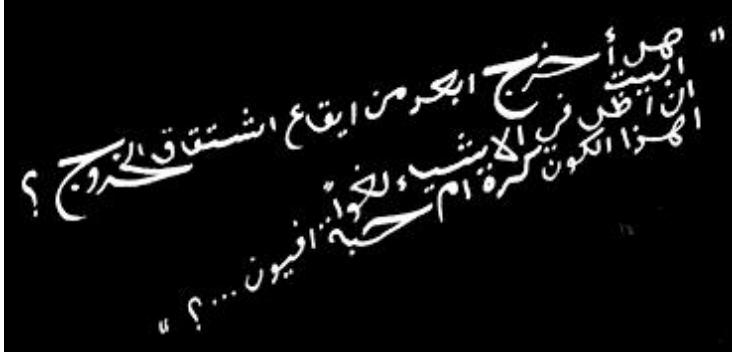 " هل أخرج ابعد من ايقاع اشتقاق الخروج ؟
ابيت
ان اظل في الاشياء لغواً
اهذا الكون كرة ام حبة افيون...؟ "